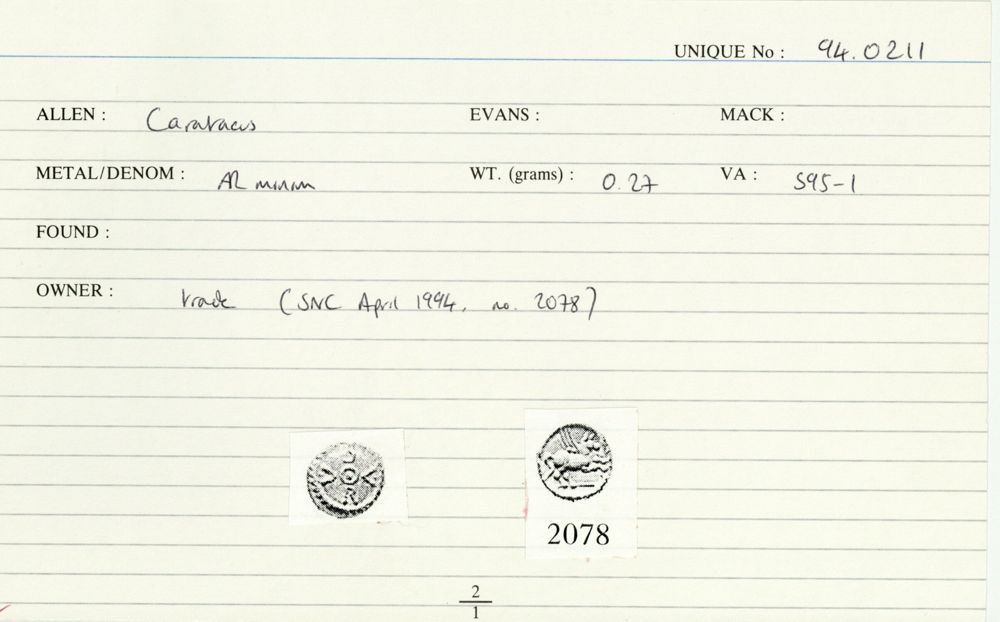 UNIQUE No : 94.0211
ALLEN : Caratacus EVANS : MACK :
METAL/DENOM : AR minim WT. (grams) : 0.27 VA : 595-1
FOUND :
OWNER : trade (SNC April 1994, no. 2078)
2078
2
1